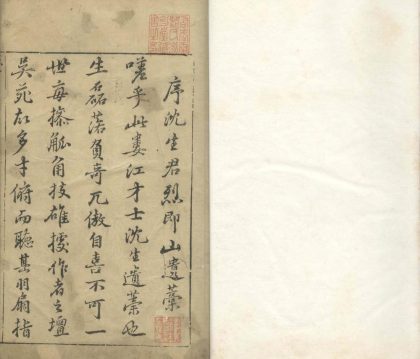 序沈生君烈即山遺藁
嗟乎此婁江才士沈生遺藁也
生磊落負奇兀傲自喜不可一
世每搽觚角技雄擅作者之壇
吳苑故多才俯而聽其羽扇指